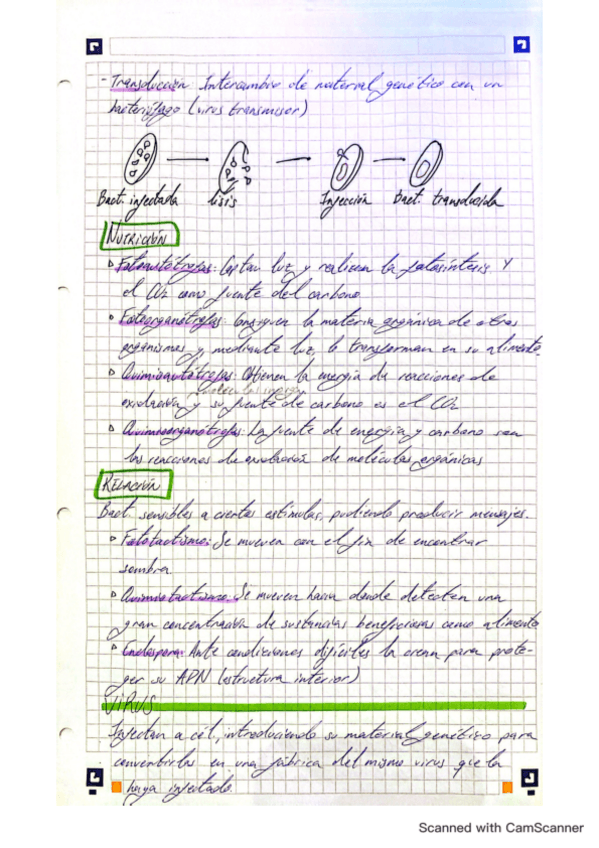 - Transducción: Intercambio de material genético con un
bacteriófago (virus transmisor)
Bact. infectada lisis Inyección Bact. transducida
NUTRICIÓN
Fotoautótrofas: Captan luz y realizan la fotosíntesis y
el CO2 como fuente del carbono
Fotoorganótrofas: Consiguen la materia orgánica de otros
organismos y mediante luz, lo transforman en su alimento.
Quimioautótrofas: Obtienen la energía de reacciones de
oxidación y su fuente de carbono es el CO2
Quimioorganótrofas: La fuente de energía y carbono son
las reacciones de oxidación de moléculas orgánicas
RELACIÓN
Bact. sensibles a ciertos estímulos, pudiendo producir mensajes.
Fototactismo: Se mueven con el fin de encontrar
sombra
Quimiotactismo: Se mueven hacia donde detecten una
gran concentración de sustancias beneficiosas como alimento
Endospora: Ante condiciones difíciles la crean para prote-
ger su ADN (estructura interior)
VIRUS
Infectan a cél., introduciendo su material genético para
convertirlas en una fábrica del mismo virus que la
haya infectado.
Scanned with CamScanner